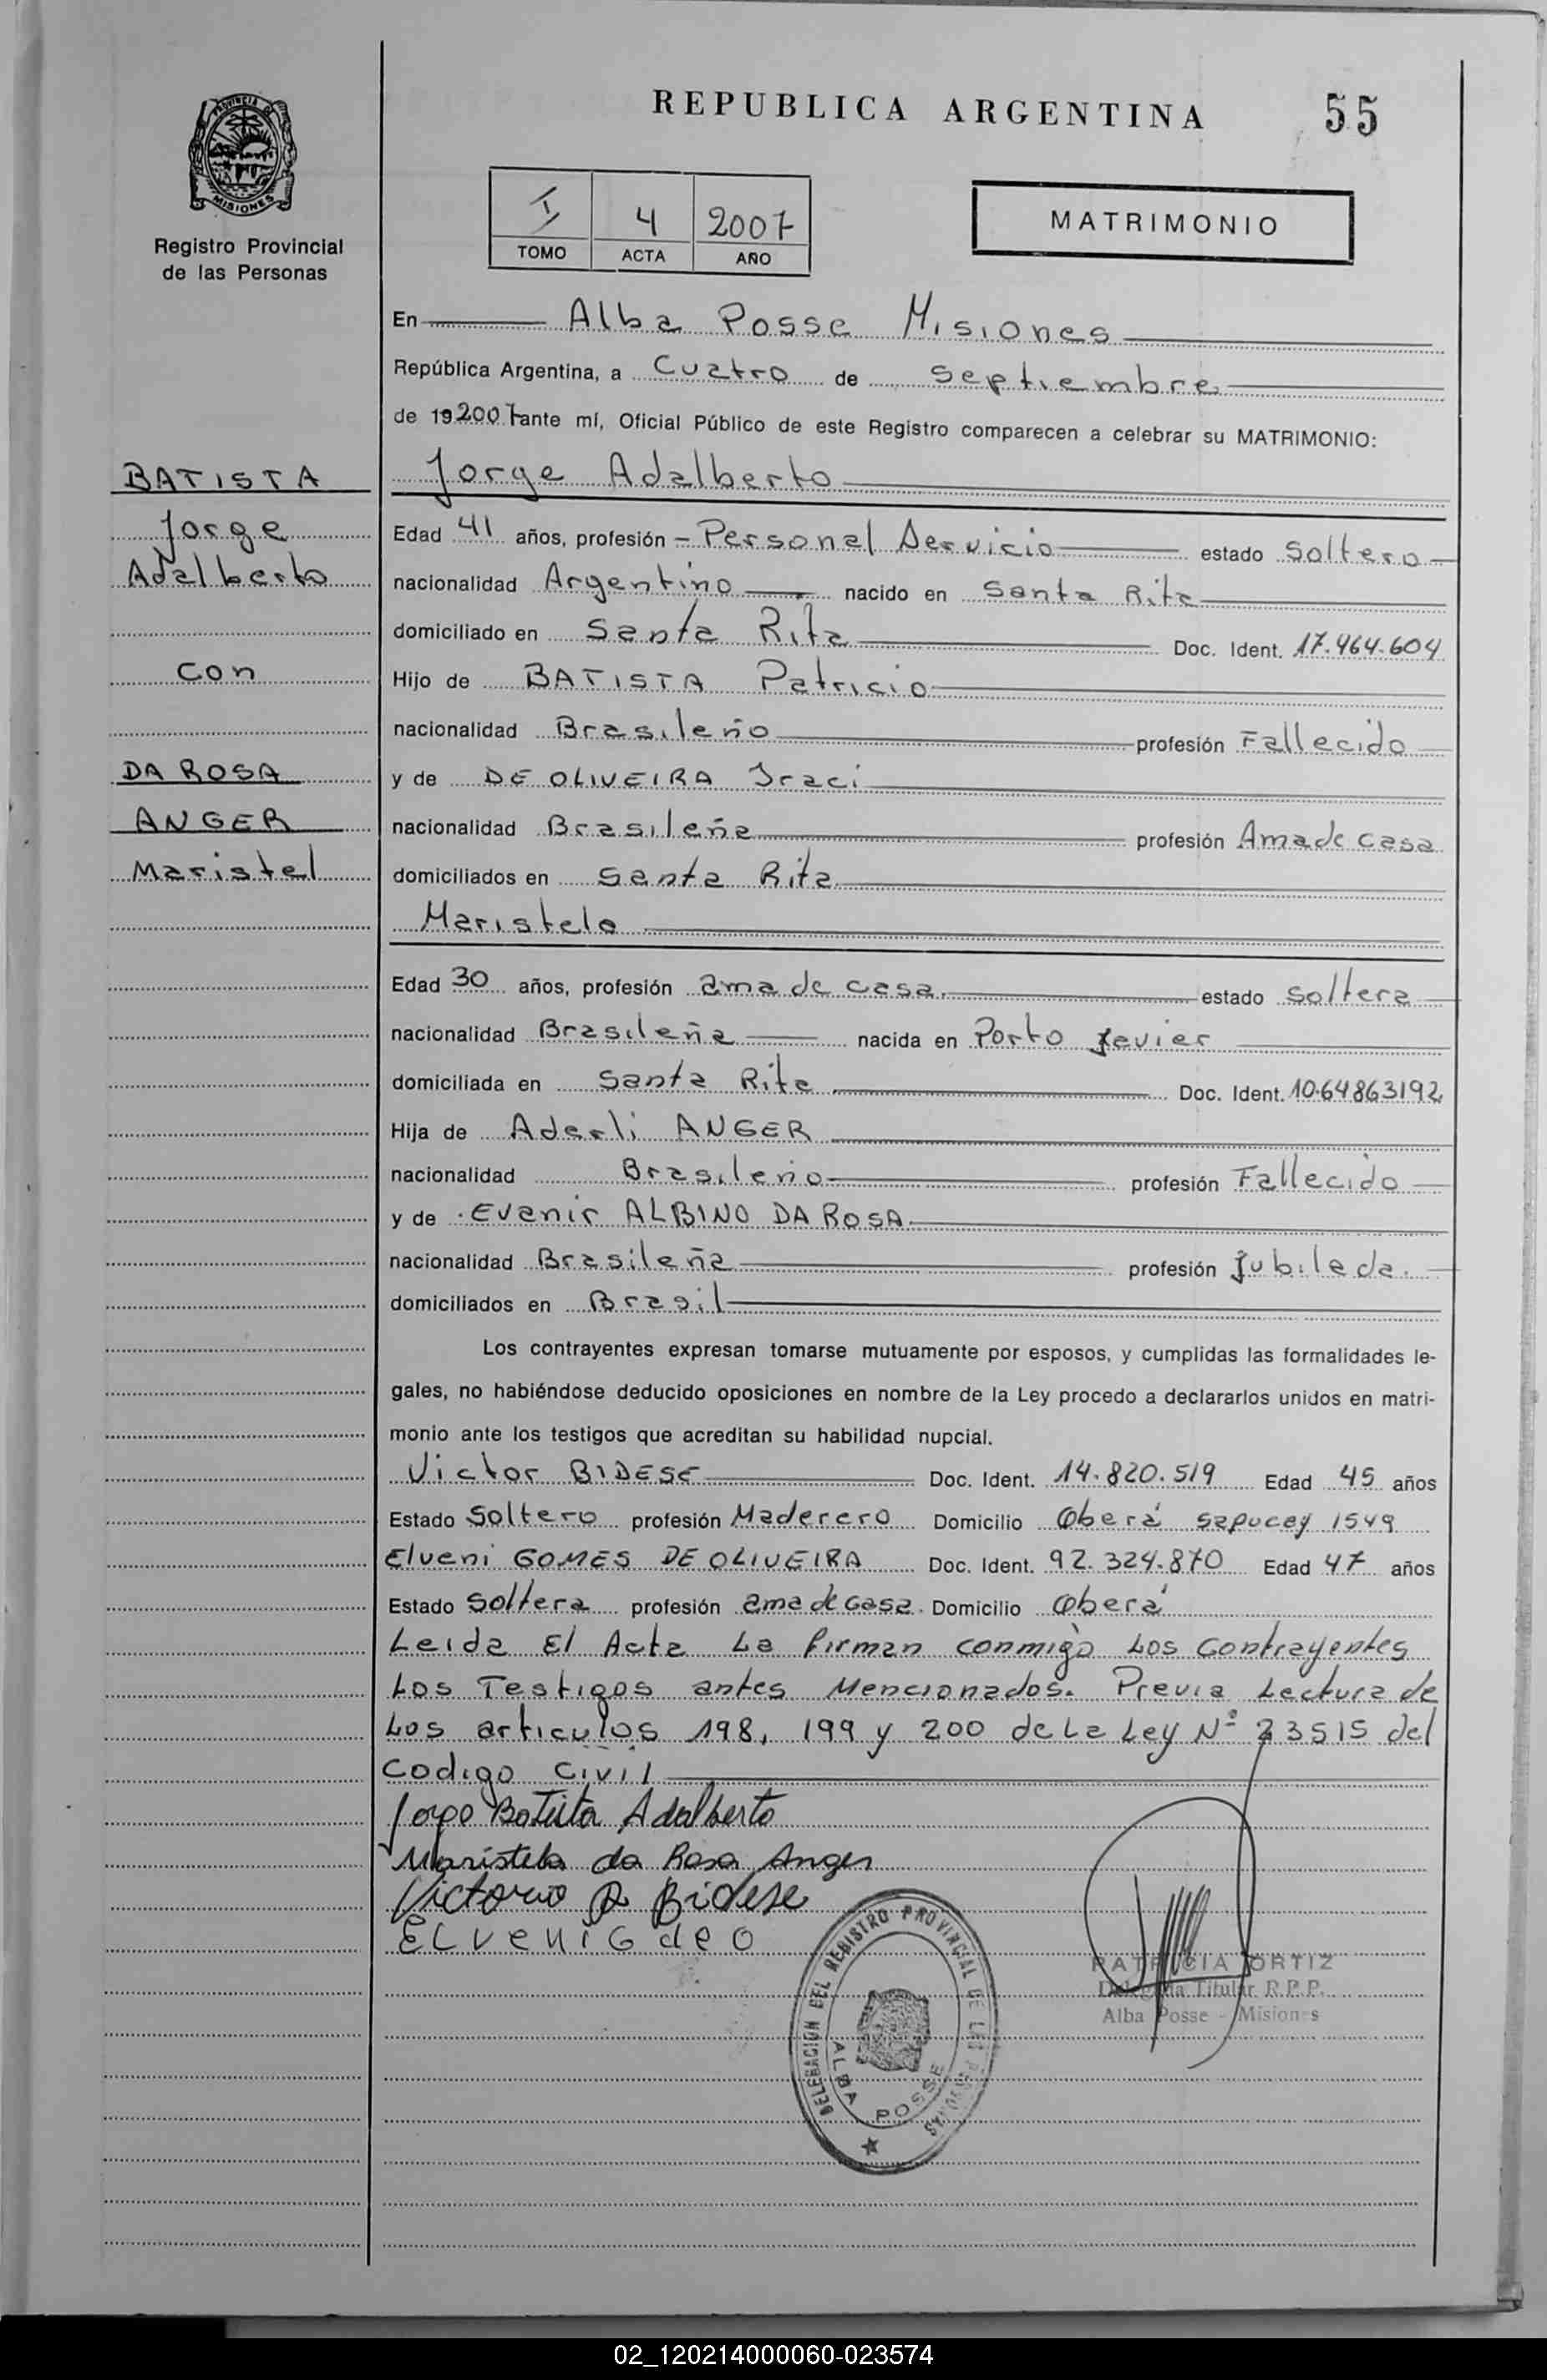 REPUBLICA ARGENTINA
55
PROVINCIA DE
MISIONES
Registro Provincial
de las Personas
I 4 2007
TOMO ACTA AÑO
MATRIMONIO
En Alba Posse Misiones
República Argentina, a Cuatro de Septiembre
de 19 2007 ante mí, Oficial Público de este Registro comparecen a celebrar su MATRIMONIO:
BATISTA
Jorge
Adalberto
con
DA ROSA
ANGER
Maristel
Jorge Adalberto
Edad 41 años, profesión - Personal Servicio estado Soltero
nacionalidad Argentino nacido en Santa Rita
domiciliado en Santa Rita Doc. Ident. 17.464.604
Hijo de BATISTA Patricio
nacionalidad Brasileño profesión Fallecido
y de DE OLIVEIRA Iraci
nacionalidad Brasileña profesión Ama de casa
domiciliados en Santa Rita
Maristela
Edad 30 años, profesión ama de casa. estado Soltera
nacionalidad Brasileña nacida en Porto Xavier
domiciliada en Santa Rita Doc. Ident. 1064863192
Hija de Aderli ANGER
nacionalidad Brasileño profesión Fallecido
y de Evenir ALBINO DA ROSA
nacionalidad Brasileña profesión Jubilada.
domiciliados en Brasil
Los contrayentes expresan tomarse mutuamente por esposos, y cumplidas las formalidades le-
gales, no habiéndose deducido oposiciones en nombre de la Ley procedo a declararlos unidos en matri-
monio ante los testigos que acreditan su habilidad nupcial.
Victor BIDESE Doc. Ident. 14.820.519 Edad 45 años
Estado Soltero profesión Maderero Domicilio Oberá Sapucay 1549
Elveni GOMES DE OLIVEIRA Doc. Ident. 92.324.870 Edad 47 años
Estado Soltera profesión ama de casa. Domicilio Oberá
Leida El Acta La firman conmigo Los Contrayentes
Los Testigos antes Mencionados. Previa Lectura de
Los articulos 198, 199 y 200 de La Ley Nº 23515 del
Codigo Civil
Jorge Batista Adalberto
Maristela da Rosa Anger
Victorio R Bidese
ELveni G de O
DELEGACION DEL REGISTRO PROVINCIAL DE LAS PERSONAS
ALBA POSSE
PATRICIA ORTIZ
Delegada Titular R.P.P.
Alba Posse - Misiones
02_120214000060-023574